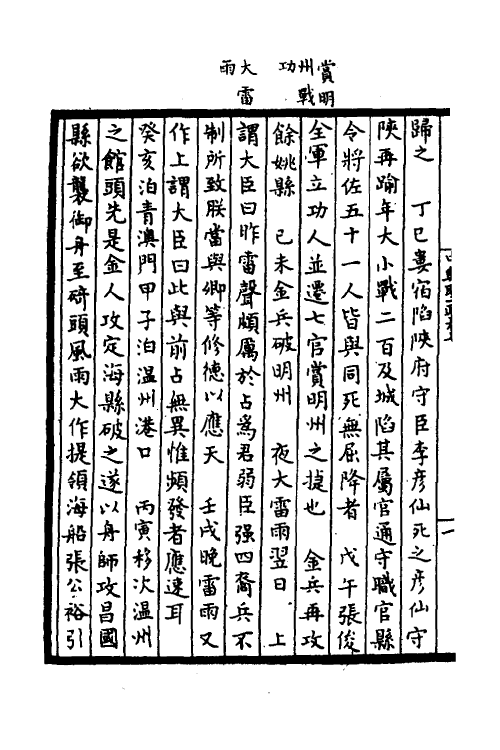 賞明州戰功
大雷雨
歸之　丁巳婁宿陷陝府守臣李彥仙死之彥仙守
陝再踰年大小戰二百及城陷其屬官通守職官縣
令將佐五十一人皆與同死無屈降者　戊午張俊
全軍立功人並遷七官賞明州之捷也　金兵再攻
餘姚縣　己未金兵破明州　夜大雷雨翌日　上
謂大臣曰昨雷聲頗厲於占為君弱臣强四裔兵不
制所致朕當與卿等修德以應天　壬戌晚雷雨又
作上謂大臣曰此與前占無異惟頻發者應速耳
癸亥泊青澳門甲子泊溫州港口　丙寅移次溫州
之館頭先是金人攻定海縣破之遂以舟師攻昌國
縣欲襲御舟至碕頭風雨大作提領海船張公裕引